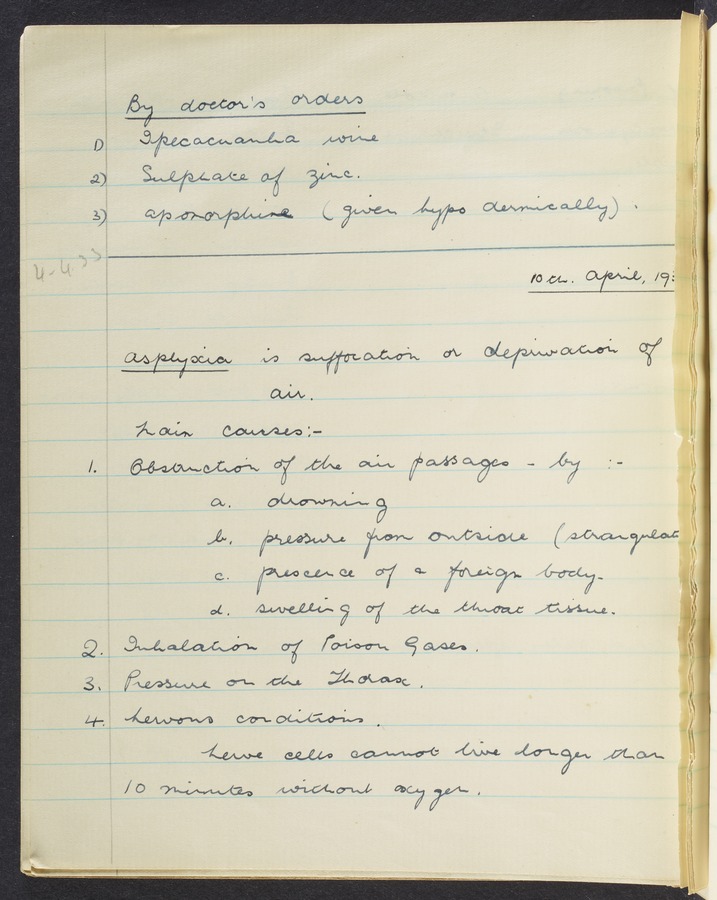 By doctor's orders
1) Ipecacuanha wine
2) Sulphate of zinc.
3) apomorphine (given hypo dermically).
4-4.33
10th. April, 193
Asphyxia is suffocation or deprivation of
air.
Main causes:-
1. Obstruction of the air passages - by :-
a. drowning
b. pressure from outside (strangulat
c. prescence of a foreign body-
d. swelling of the throat tissue.
2. Inhalation of Poison Gases.
3. Pressure on the Thorax.
4. Nervous conditions.
Nerve cells cannot live longer than
10 minutes without oxygen.